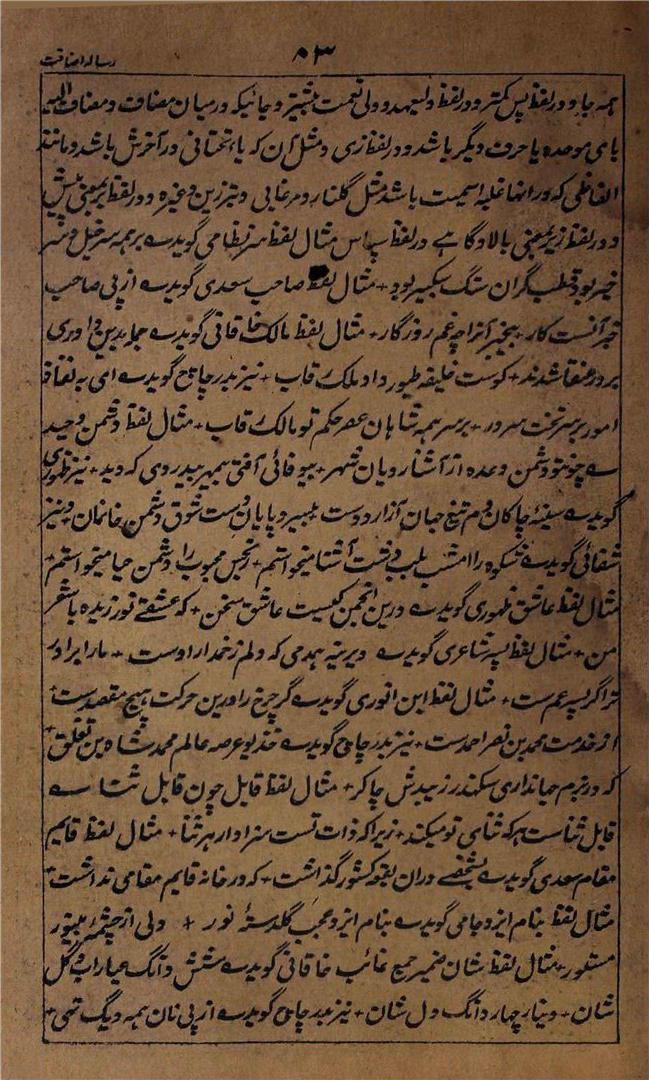 رساله اضافت
۵۳
همه جا و در لفظ پس کمتر و در لفظ ولیعهد و ولی نعمت بیشتر و جائیکه درمیان مضاف و مضاف الیه
یای موحده یا حرف دیگر باشد و در لفظ زی و مثل آن که یاء تحتانی در آخرش باشد و مانند
الفاظی که در انها غلبه اسمیت باشد مثل گلنار و مرغابی و تبرزین و غیره و در لفظ بر بمعنی پیش
و در لفظ زیر بمعنی بالا و گاهے در لفظ پس مثال لفظ سر نظامی گوید ے بر همه سرخیل و سر
خیر بود قطب گران سنگ سبکسیر بود + مثال لفظ صاحب سعدی گوید ے از پی صاحب
خبر آنست کار + بیخبر آنرا چه غم روزگار + مثال لفظ مالک خاقانی گوید ے جمله بدین داوری
بر در عنقا شدند + کوست خلیفه طیور داور مالک رقاب + نیز بدر چاچ گوید ے ای به نفاذ
امور بر سر تخت سرور + بر سر همه شاهان عصر حکم تو مالک رقاب + مثال لفظ دشمن وحید
ے چو تو دشمن وعده از آشنا رویان شهر + بیوفائی آفتی بیمهر بیدردی که دید + نیز ظهوری
گوید ے سینهٔ چاکان دم تیغ جهان آزار دوست + بیسر و پایان دست شوق دشمن خانمان و نیز
شفائی گوید ے شکوه را امشب بلب دشت آشنا میخواستم + رنجش محبوب را دشمن حیا میخواستم +
مثال لفظ عاشق ظهوری گوید ے درین انجمن کیست عاشق سخن + که عشقے نورزیده با شعر
من + مثال لفظ پسر شاعری گوید ے دیرینه همدمی که دلم زخمدار اوست + ما را برادر
ترا گر پسر عم ست + مثال لفظ ابن انوری گوید ے گر چرخ را درین حرکت هیچ مقصد ست
از خدمت محمد بن نصر احمد ست + نیز بدر چاچ گوید ے خدیو عرصه عالم محمد شاه بن تغلق +
که در بزم جهانداری سکندر زیبدش چاکر + مثال لفظ قابل چون قابل ثنا ے
قابل ثناست هر که ثنای تو میکند + زیرا که ذات تست سزاوار هر ثنا + مثال لفظ قایم
مقام سعدی گوید ے شخصے دران بقعه کشور گذاشت + که در خانه قایم مقامی نداشت +
مثال لفظ بنام ایزد جامی گوید ے بنام ایزد عجب گلدستهٔ نور + ولی از چشمهٔ بینور
مستور + مثال لفظ شان ضمیر جمع غائب خاقانی گوید ے شش دانگ عیاراب و گل
شان + دینار چهار دانگ دل شان + نیز بدر چاچ گوید ے از پی نان همه دیگ تهی +